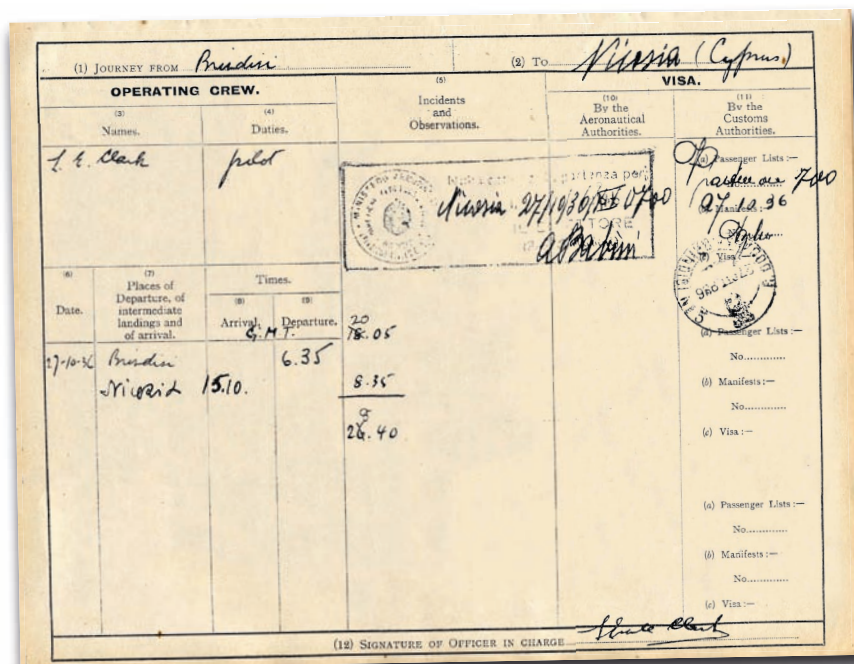 (1) JOURNEY FROM Brindisi
(2) TO Nicosia (Cyprus.)
OPERATING CREW.
(3)
Names.
(4)
Duties.
(5)
Incidents
and
Observations.
VISA.
(10)
By the
Aeronautical
Authorities.
(11)
By the
Customs
Authorities.
L. E. Clark
pilot
Nicosia 27/10/36 0700
(a) Passenger Lists:—
7000
27.10.36
Visa
(6)
Date.
(7)
Places of
Departure, of
intermediate
landings and
of arrival.
Times.
(8)
Arrival.
(9)
Departure.
G.M.T.
20
18.05
27-10-36 Brindisi 6.35
Nicosia 15.10.
8.35
26.40
(a) Passenger Lists:—
No.............
(b) Manifests:—
No.............
(c) Visa:—
(a) Passenger Lists:—
No.............
(b) Manifests:—
No.............
(c) Visa:—
(12) SIGNATURE OF OFFICER IN CHARGE